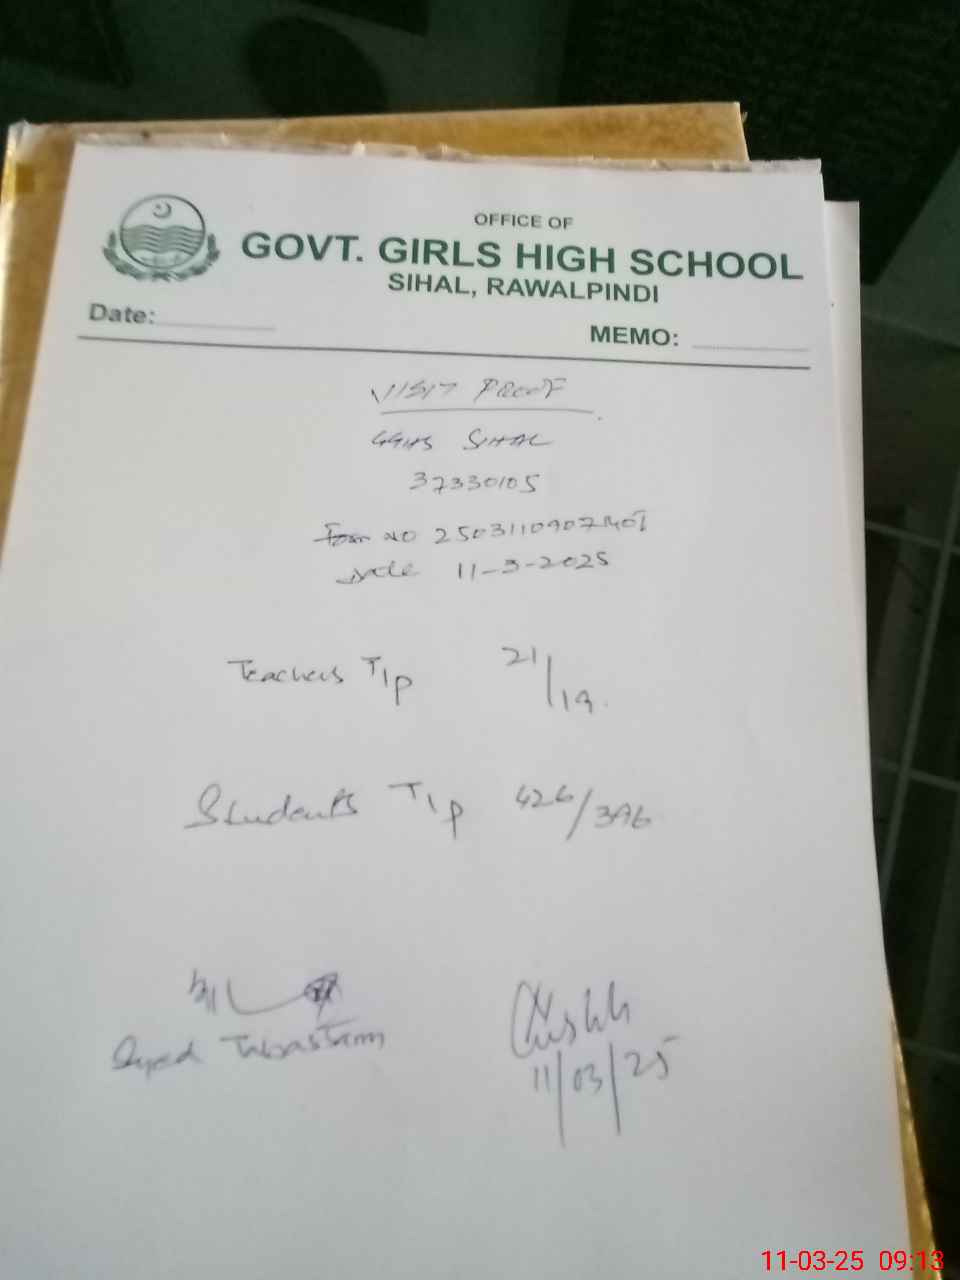 OFFICE OF
GOVT. GIRLS HIGH SCHOOL
SIHAL, RAWALPINDI
Date:
MEMO:
VISIT PROOF
GGHS SIHAL
37330105
Form NO
Date 11-3-2025
Teachers T/p 21/19
Students T/p 426/396
Syed Tabassam
11/03/25
11-03-25 09:13